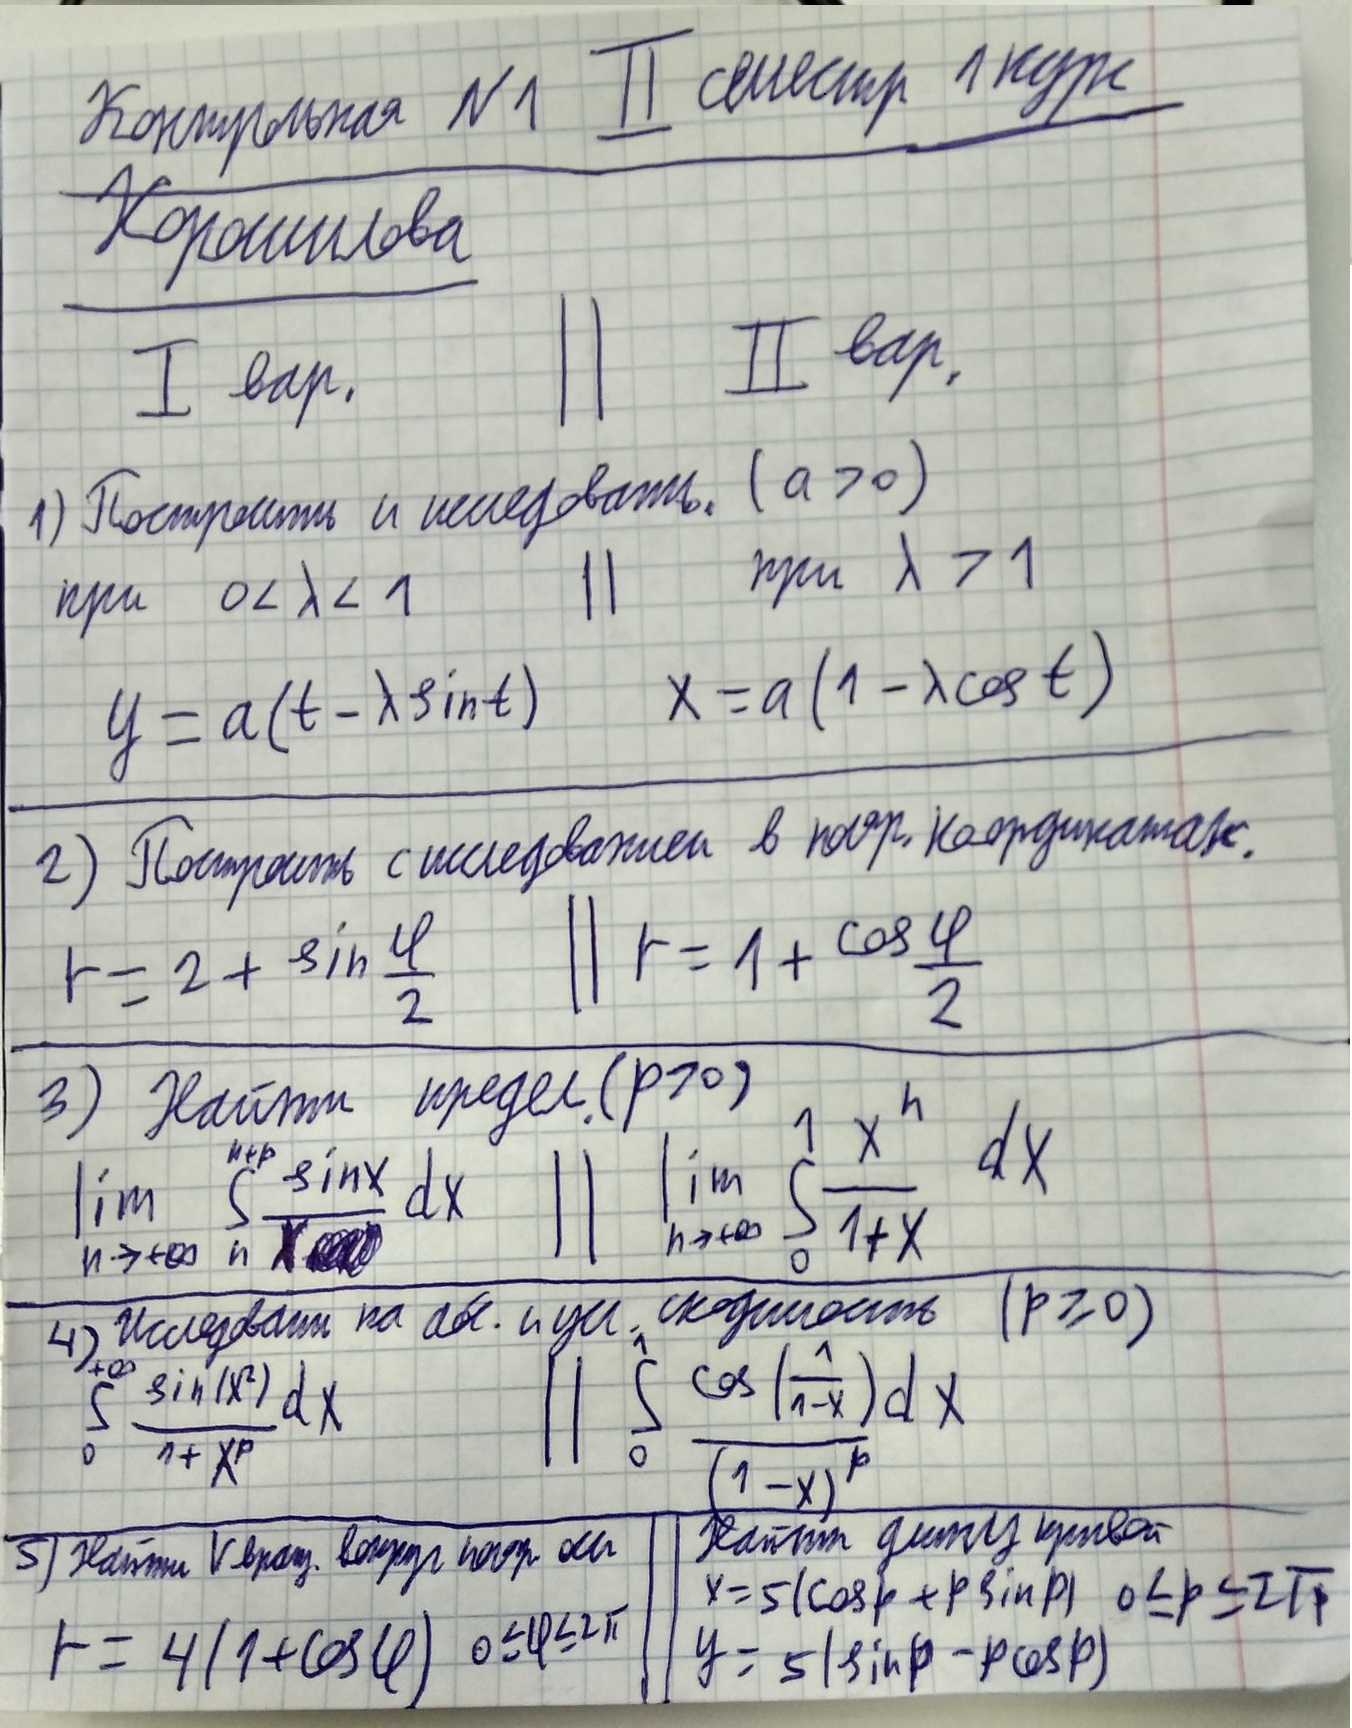 Контрольная №1 II семестр 1 курс
Хорошилова
I вар. || II вар.
1) Построить и исследовать. (a>0)
при 0<λ<1 || при λ>1
y=a(t-λsint) x=a(1-λcost)
2) Построить с исследованием в поляр. координатах.
r=2+sin φ/2 || r=1+cos φ/2
3) Найти предел. (p>0)
lim n→+∞ ∫ n n+p sinx/x dx || lim n→+∞ ∫ 0 1 x^n/(1+x) dx
4) Исследовать на абс. и усл. сходимость (p≥0)
∫ 0 +∞ sin(x²)/(1+x^p) dx || ∫ 0 1 cos(1/(1-x))dx/(1-x)^p
5) Найти V вращ. вокруг поляр оси || Найти длину кривой
r=4(1+cosφ) 0≤φ≤2π || x=5(cosp+psinp) 0≤p≤2π
y=5(sinp-pcosp)